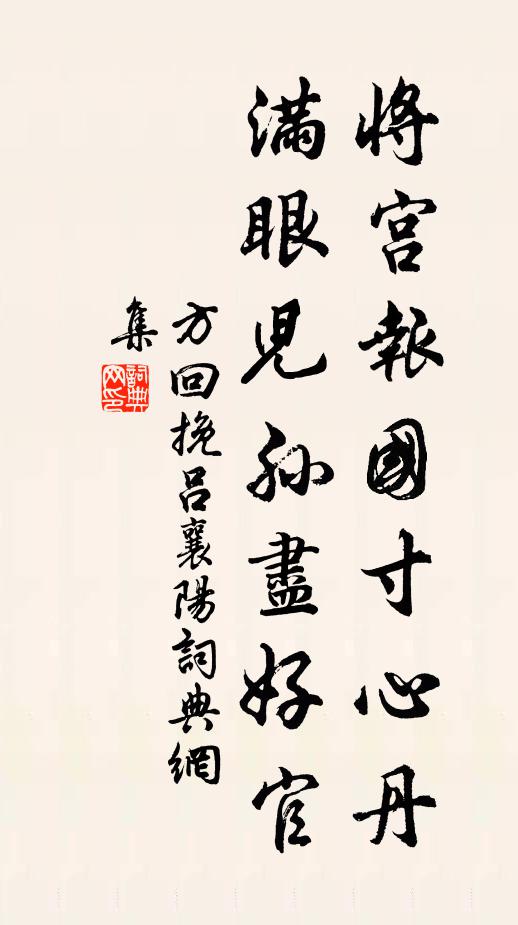 將宮報國寸心丹
滿眼児孫盡好官
方回挽呂襄陽詞典網
集
詞典網印